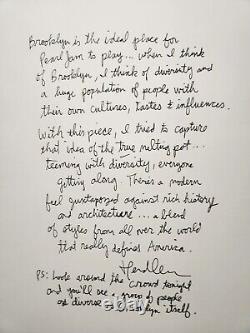 Brooklyn is the ideal place for
Pearl Jam to play... when I think
of Brooklyn, I think of diversity and
a huge population of people with
their own cultures, tastes & influences.
With this piece, I tried to capture
that idea of the true melting pot...
teeming with diversity, everyone
getting along. There's a modern
feel juxtaposed against rich history
and architecture... a blend
of styles from all over the world
that really defines America.
PS: Look around the crowd tonight
and you'll see a group of people
as diverse as Brooklyn itself.